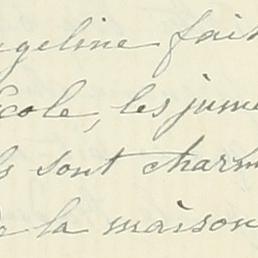 ngeline fait
école, les jume
ls sont charm
de la maison